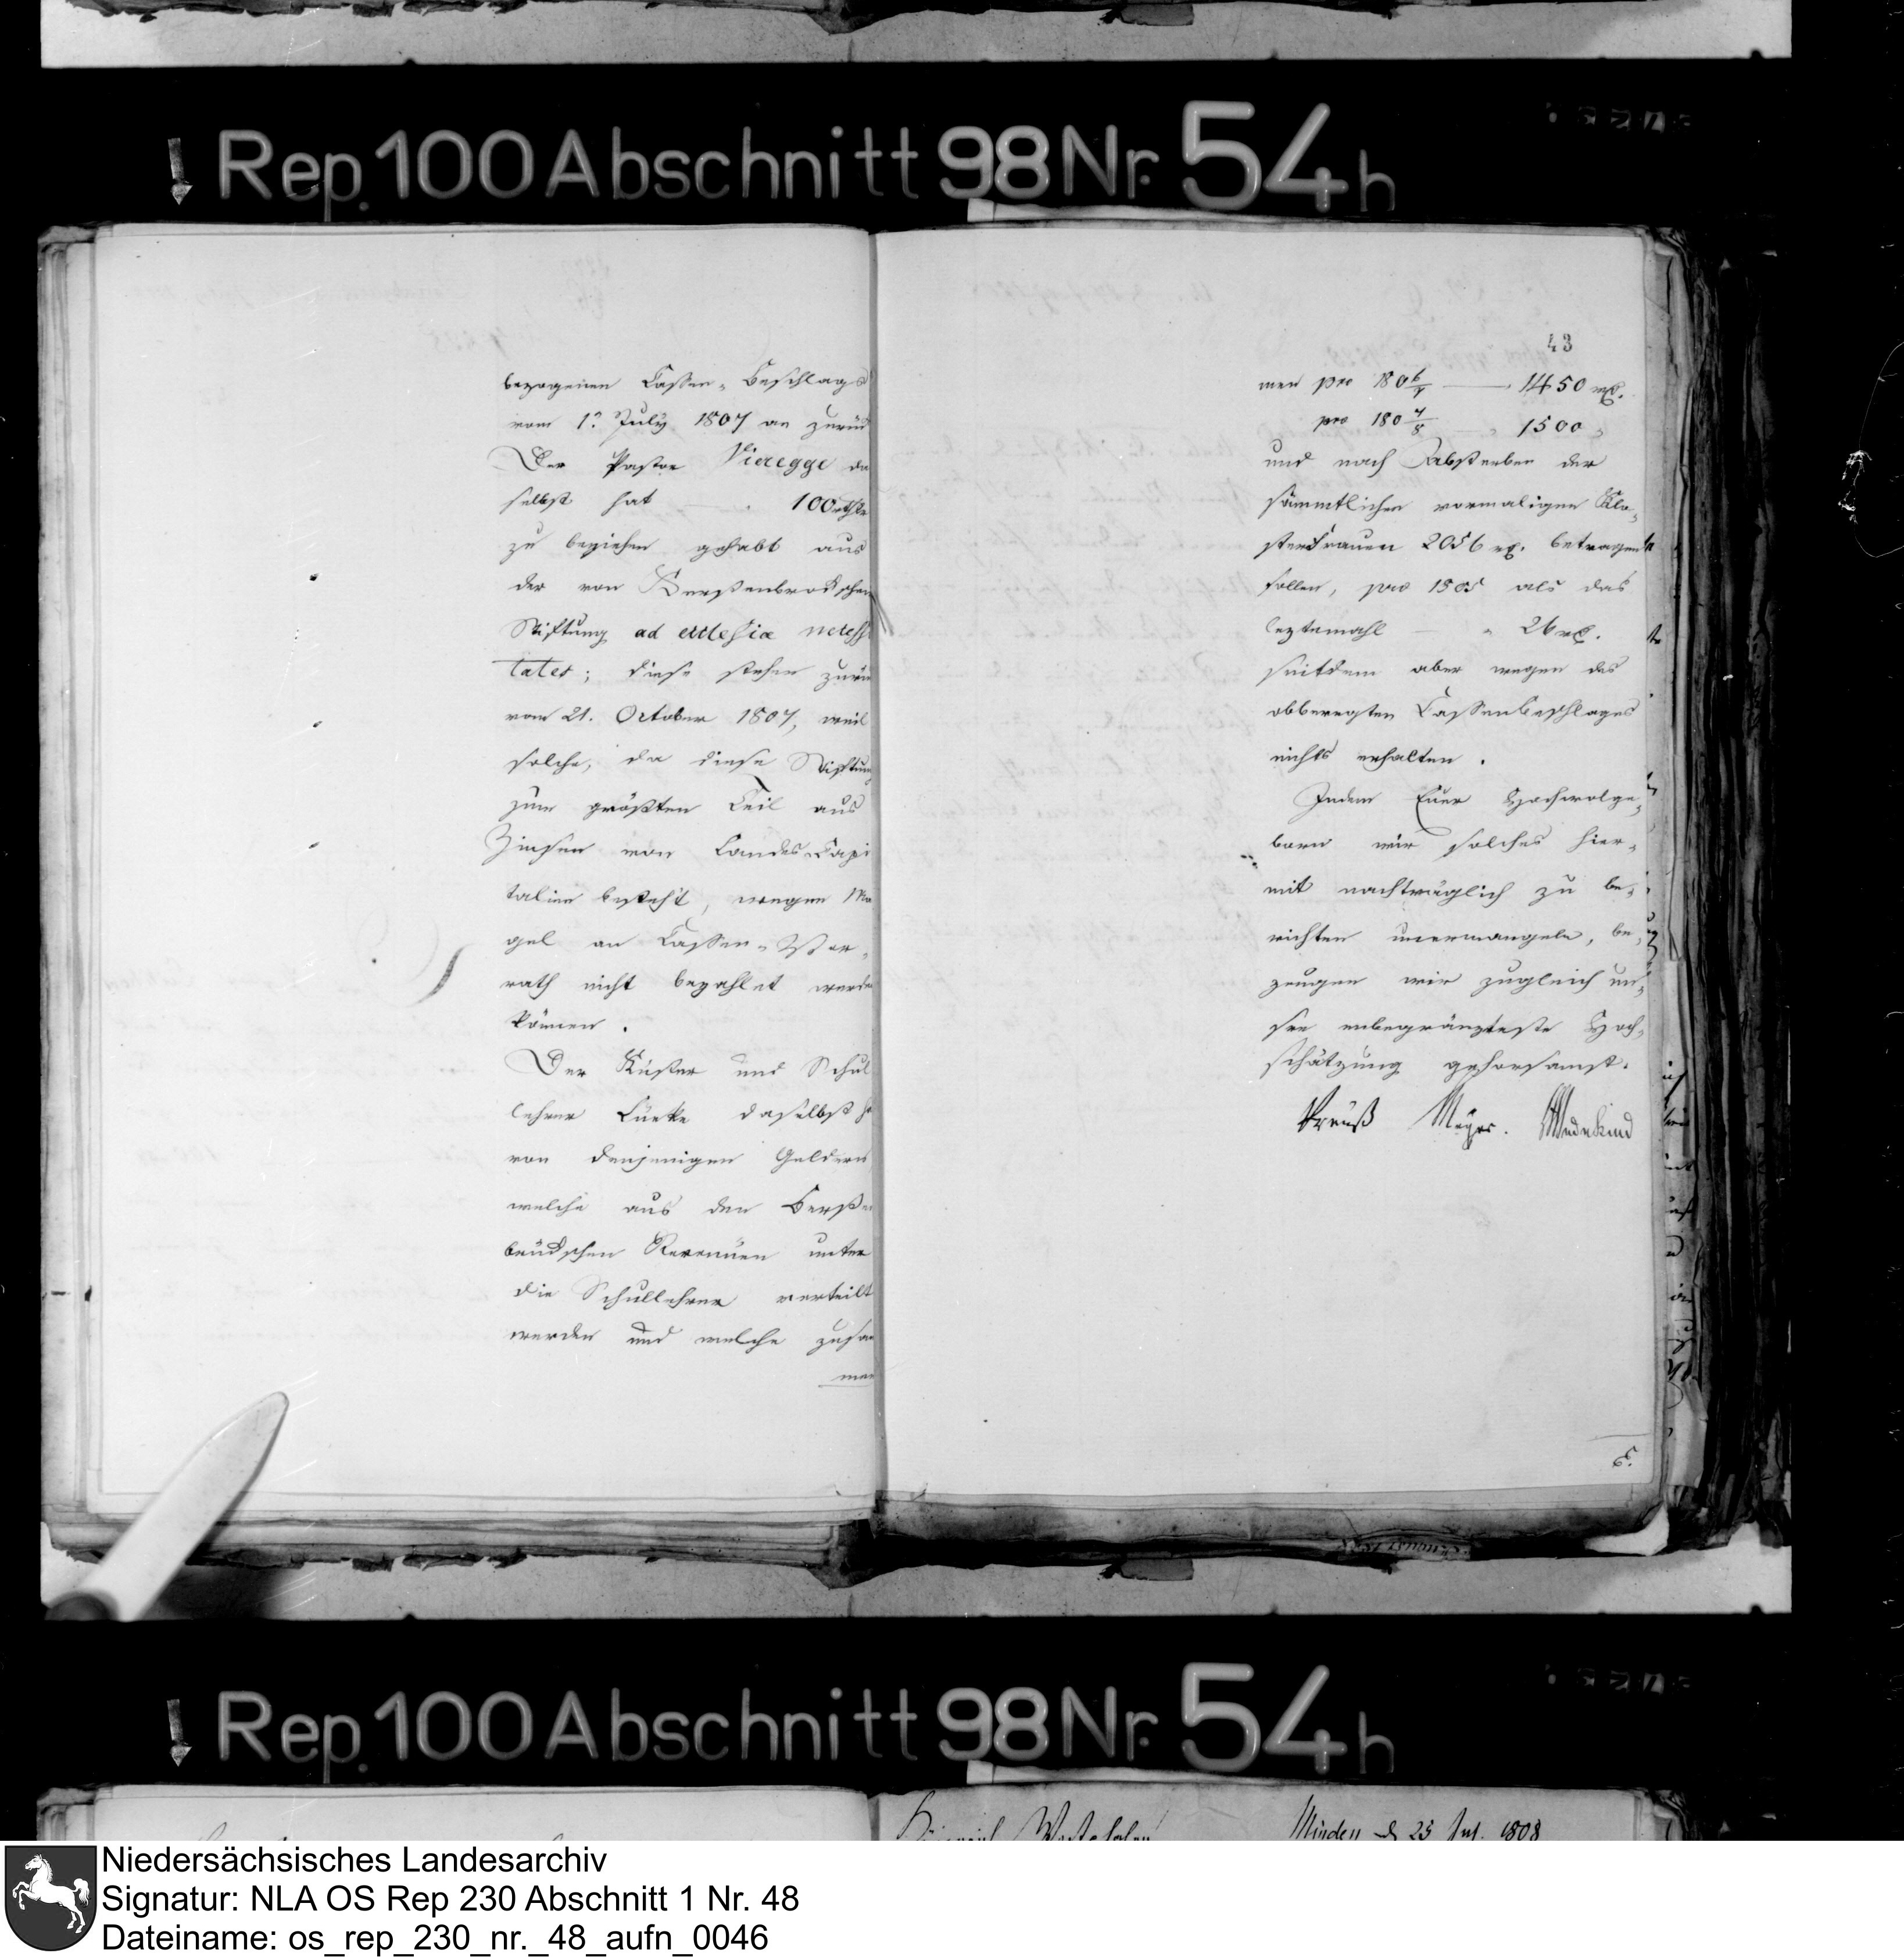 Rep. 100 Abschnitt 98 Nr. 54 h
bezogenen Cassen-Beschlags
vom 1t July 1807 an zurück
Der Pastor Vieregge da
selbst hat — 100 rthlr
zu beziehen gehabt aus
der von Kerßenbrockschen
Stiftung ad ecclesiæ necessi
tates; diese stehen zurü
vom 21. October 1807, weil
solche, da diese Stiftung
zum größten Teil aus
Zinsen von Landes-Capi
talien besteht, wegen Ma
gel an Cassen-Vor-
rath nicht bezahlet werden
können.
Der Küster und Schul
lehrer Lüeke daselbst h
von denjenigen Geldern
welche aus den Berßen
brückschen Revenüen unter
die Schullehrer verteilt
werden und welche zusam
men
43
men pro 180 6/7 — 1450 rth.
pro 180 7/8 — 1500 "
und nach Absterben der
sämmtlichen vormaligen Klo-
sterfrauen 2056 rth. betragen
sollen, pro 1805 als das
leztemahl — 26 rth.
seitdem aber wegen des
obberegten Cassenbeschlages
nichts erhalten.
Indem Euer Hochwolge-
born wir solches hier-
mit nachträglich zu be-
richten unermangeln, be-
zeugen wir zugleich un-
sre unbegränzteste Hoch-
schätzung gehorsamst.
Preuß Meyer. Wedekind
E.
Rep. 100 Abschnitt 98 Nr. 54 h
Minden d 25 Jul. 1808
Niedersächsisches Landesarchiv
Signatur: NLA OS Rep 230 Abschnitt 1 Nr. 48
Dateiname: os_rep_230_nr._48_aufn_0046